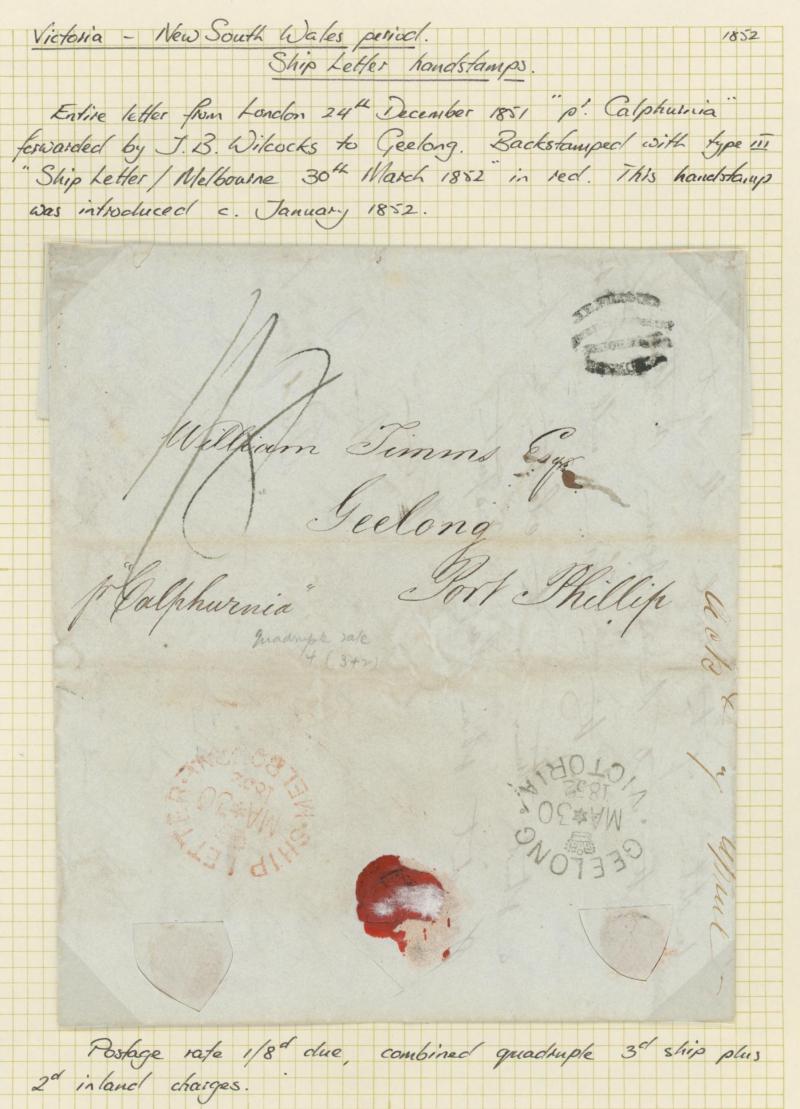 Victoria - New South Wales period. 1852
Ship Letter handstamps.
Entire letter from London 24th December 1851 "pr. Calphurnia"
forwarded by J. B. Wilcocks to Geelong. Backstamped with type III
"Ship Letter / Melbourne 30th March 1852" in red. This handstamp
was introduced c. January 1852.
1/8
William Timms Esqr
Geelong
Port Phillip
pr "Calphurnia"
quadruple rate
4 (3+2)
SHIP LETTER · MELBOURNE
MA 30
1852
GEELONG · VICTORIA
MA 30
1852
Postage rate 1/8d due, combined quadruple 3d ship plus
2d inland charges.